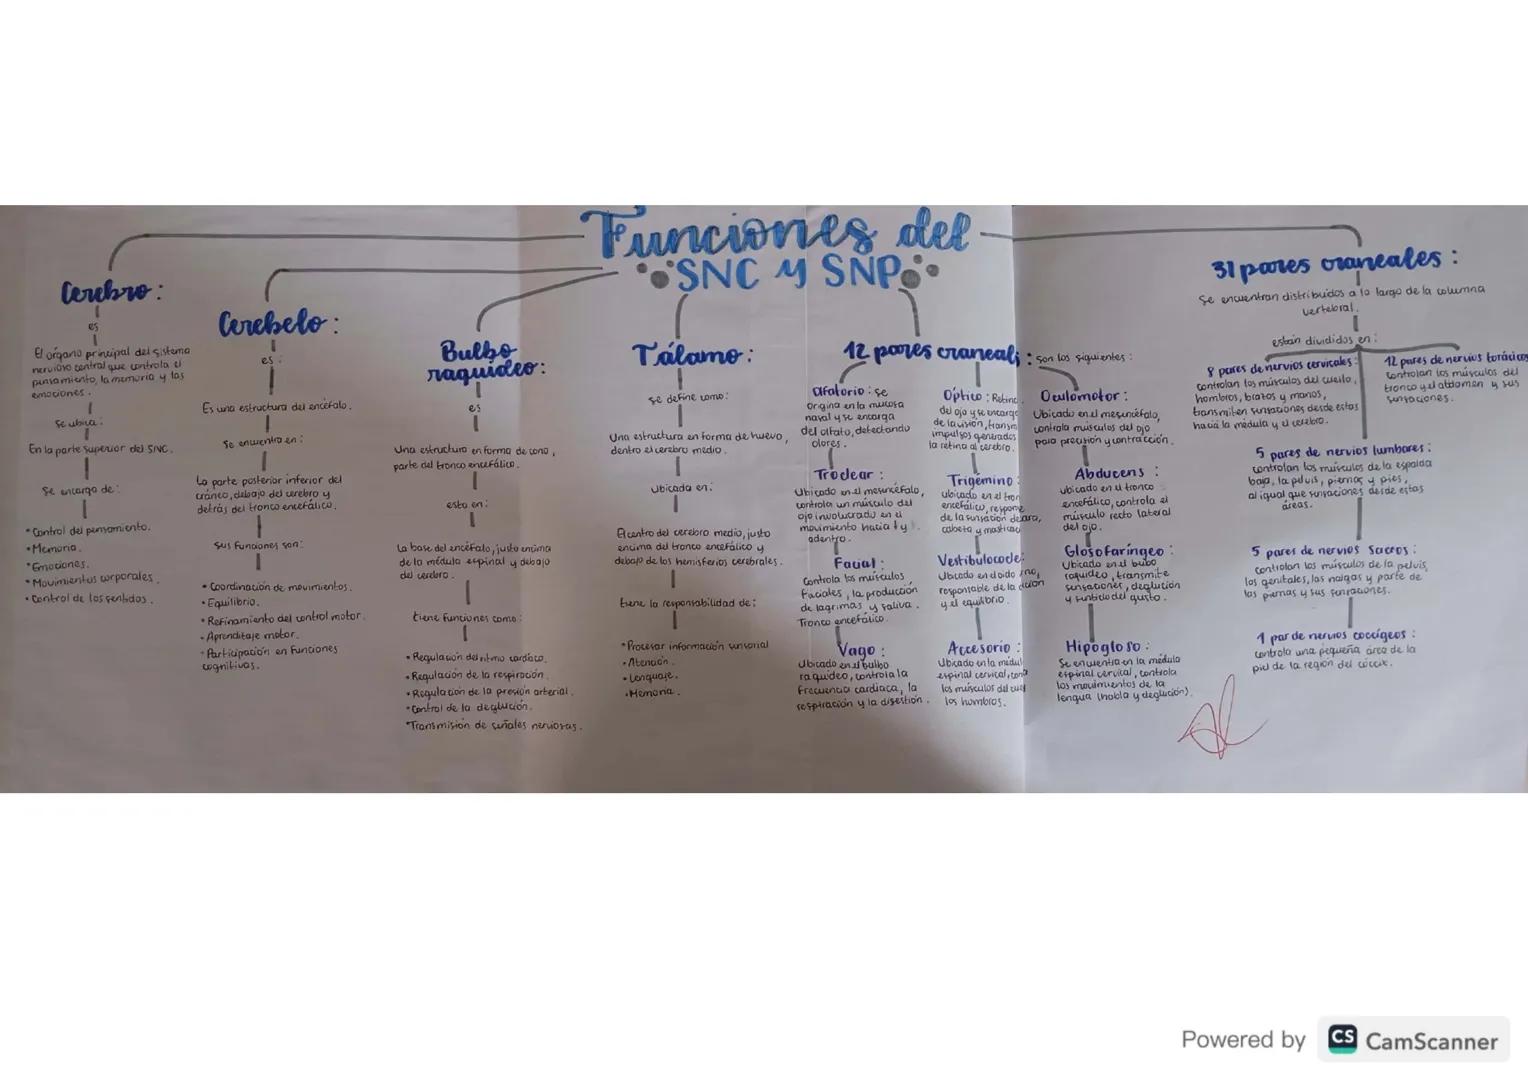 Funciones del
SNC y SNP
Cerebro:
es
El órgano principal del sistema
nervioso central que controla el
pensamiento, la memoria y las
emociones.
Se ubica:
En la parte superior del SNC.
Se encarga de:
•Control del pensamiento.
•Memoria.
•Emociones.
•Movimientos corporales.
•Control de los sentidos.
Cerebelo:
es:
Es una estructura del encéfalo.
Se encuentra en:
La parte posterior inferior del
cráneo, debajo del cerebro y
detrás del tronco encefálico.
Sus funciones son:
•Coordinación de movimientos.
•Equilibrio.
•Refinamiento del control motor.
•Aprenditaje motor.
•Participación en funciones
cognitivas.
Bulbo
raquideo:
es
Una estructura en forma de cono,
parte del tronco encefálico.
esta en:
La base del encéfalo, justo encima
de la médula espinal y debajo
del cerebro.
tiene funciones como:
•Regulación del ritmo cardíaco.
•Regulación de la respiración.
•Regulación de la presión arterial.
•Control de la deglución.
•Transmisión de señales nerviosas.
Tálamo:
se define como:
Una estructura en forma de huevo,
dentro el cerebro medio.
Ubicada en:
El centro del cerebro medio, justo
encima del tronco encefálico y
debajo de los hemisferios cerebrales.
tiene la responsabilidad de:
•Procesar información sensorial
•Atención.
•Lenguaje.
•Memoria.
12 pares craneals: son los siguientes:
Olfatorio: se
origina en la mucosa
nasal y se encarga
del olfato, detectando
olores.
Óptico: Retina
del ojo y se encarga
de la visión, transm
impulsos generados
la retina al cerebro.
Oculomotor:
Ubicado en el mesencéfalo,
controla músculos del ojo
para precisión y contracción.
Troclear:
Ubicado en el mesencéfalo,
controla un músculo del
ojo involucrado en el
movimiento hacia y
adentro.
Trigémino:
ubicado en el tron
encefálico, respons
de la sensación de aro,
cabeza y masticac
Abducens:
ubicado en el tronco
encefálico, controla el
músculo recto lateral
del ojo.
Facial:
Controla los músculos
faciales, la producción
de lagrimas y saliva.
Tronco encefálico.
Vestibulocócle:
Ubicado en el oido no,
responsable de la ción
y el equilibrio.
Glosofaríngeo:
Ubicado en el bulbo
raquideo, transmite
sensaciones, deglución
y sentido del gusto.
Vago:
Ubicado en el bulbo
raquideo, controla la
frecuencia cardiaca, la
respiración y la digestión.
Accesorio:
Ubicado en la médul
espinal cervical, cont
los músculos del cue
los hombros.
Hipogloso:
Se encuentra en la médula
espinal cervical, controla
los movimientos de la
lengua (habla y deglución).
31 pares craneales:
Se encuentran distribuidos a lo largo de la columna
vertebral.
están divididos en:
8 pares de nervios cervicales:
controlan los músculos del cuello,
hombros, brazos y manos,
transmiten sensaciones desde estas
hacia la médula y el cerebro.
12 pares de nervios torácicos
controlan los músculos del
tronco y el abdomen y sus
sensaciones.
5 pares de nervios lumbares:
controlan los músculos de la espalda
baja, la pelvis, piernas y pies,
al igual que sensaciones desde estas
áreas.
5 pares de nervios Sacros:
controlan los músculos de la pelvis,
los genitales, las nalgas y parte de
las piernas y sus sensaciones.
1 par de nervios coccígeos:
controla una pequeña área de la
piel de la región del cóccix.
Powered by CS CamScanner